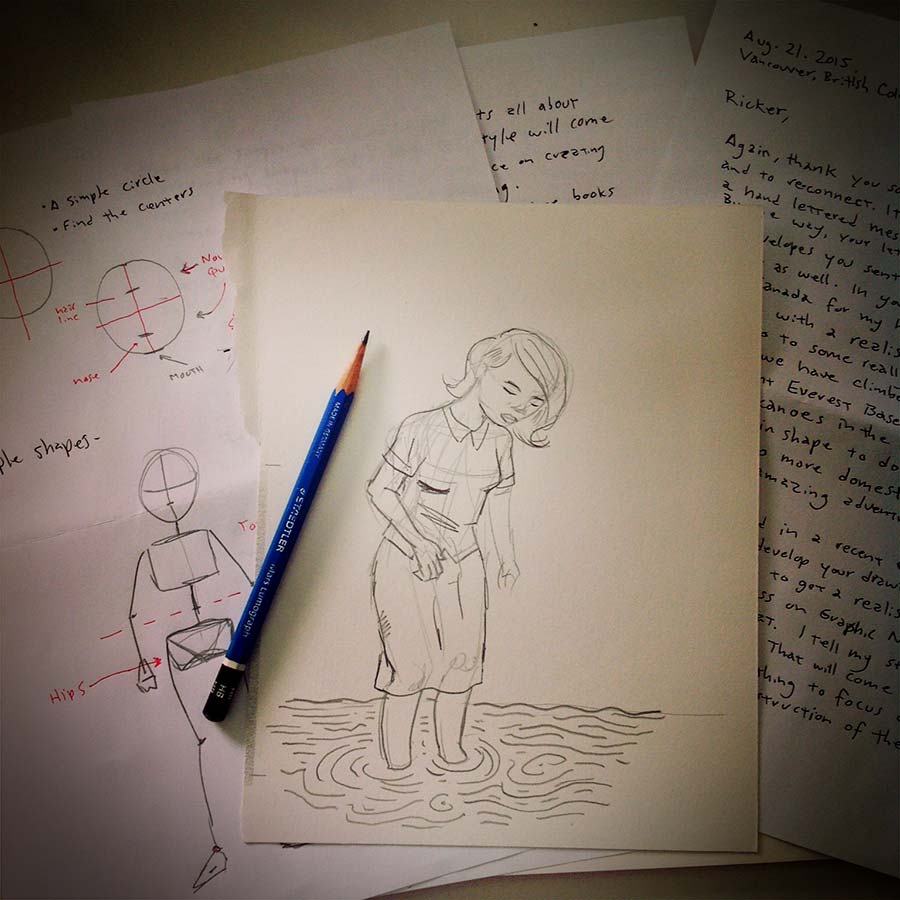 • A simple circle
• Find the centers
hair
line
nose
MOUTH
ple shapes-
Hips
ts all about
tyle will come
ce on creating
books
MADE IN GERMANY
STAEDTLER
Mars Lumograph
HB
Aug. 21. 2015.
Vancouver, British Col
Ricker,
Again, thank you so
and to reconnect. It
a hand lettered mes
way, your le
velopes you sent
as well. In yo
anada for my
with a realis
to some reall
we have climb
t Everest Base
canoes in the
in shape to do
more domest
mazing adventu
d in a recent
develop your draw
to get a realis
ss on Graphic N
at. I tell my st
That will come
thing to focus
struction of the